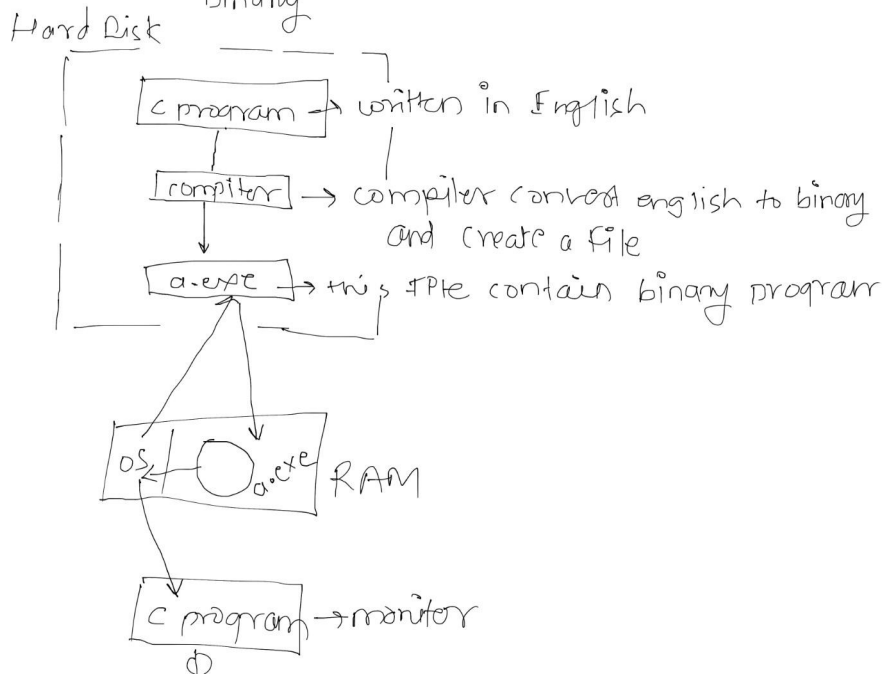 binary
Hard Disk
C program → written in English
compiler → compiler convert english to binary
and create a file
a.exe → this file contain binary program
OS a.exe RAM
C program → monitor